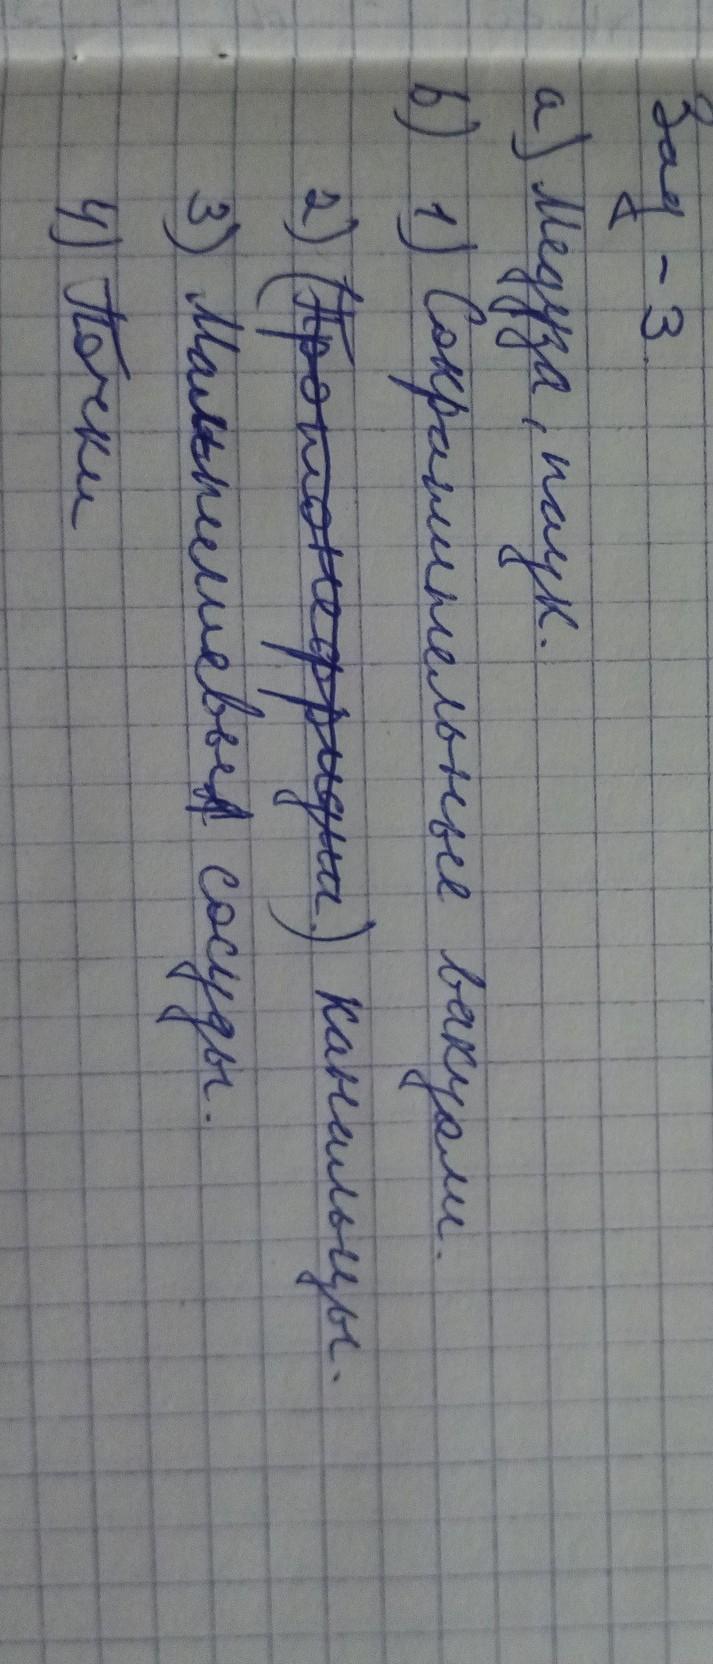 Зад - 3.
а) Медуза, паук.
b) 1) Сократительные вакуоли.
2) (Протонефридии.) канальцы.
3) Мальпигиевые сосуды.
4) Почки